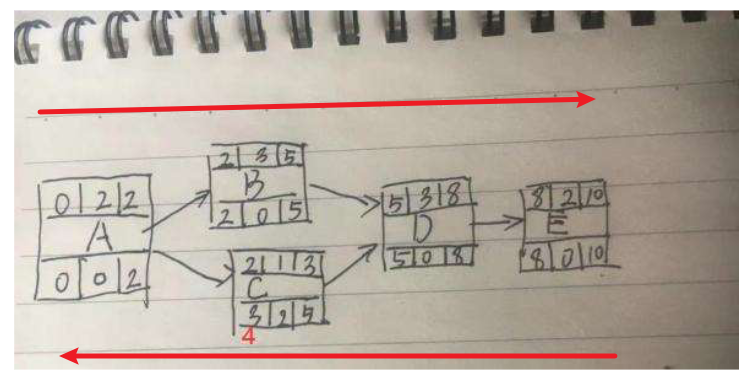 0 2 2
A
0 0 2
2 3 5
B
2 0 5
2 1 3
C
3 2 5
4
5 3 8
D
5 0 8
8 2 10
E
8 0 10